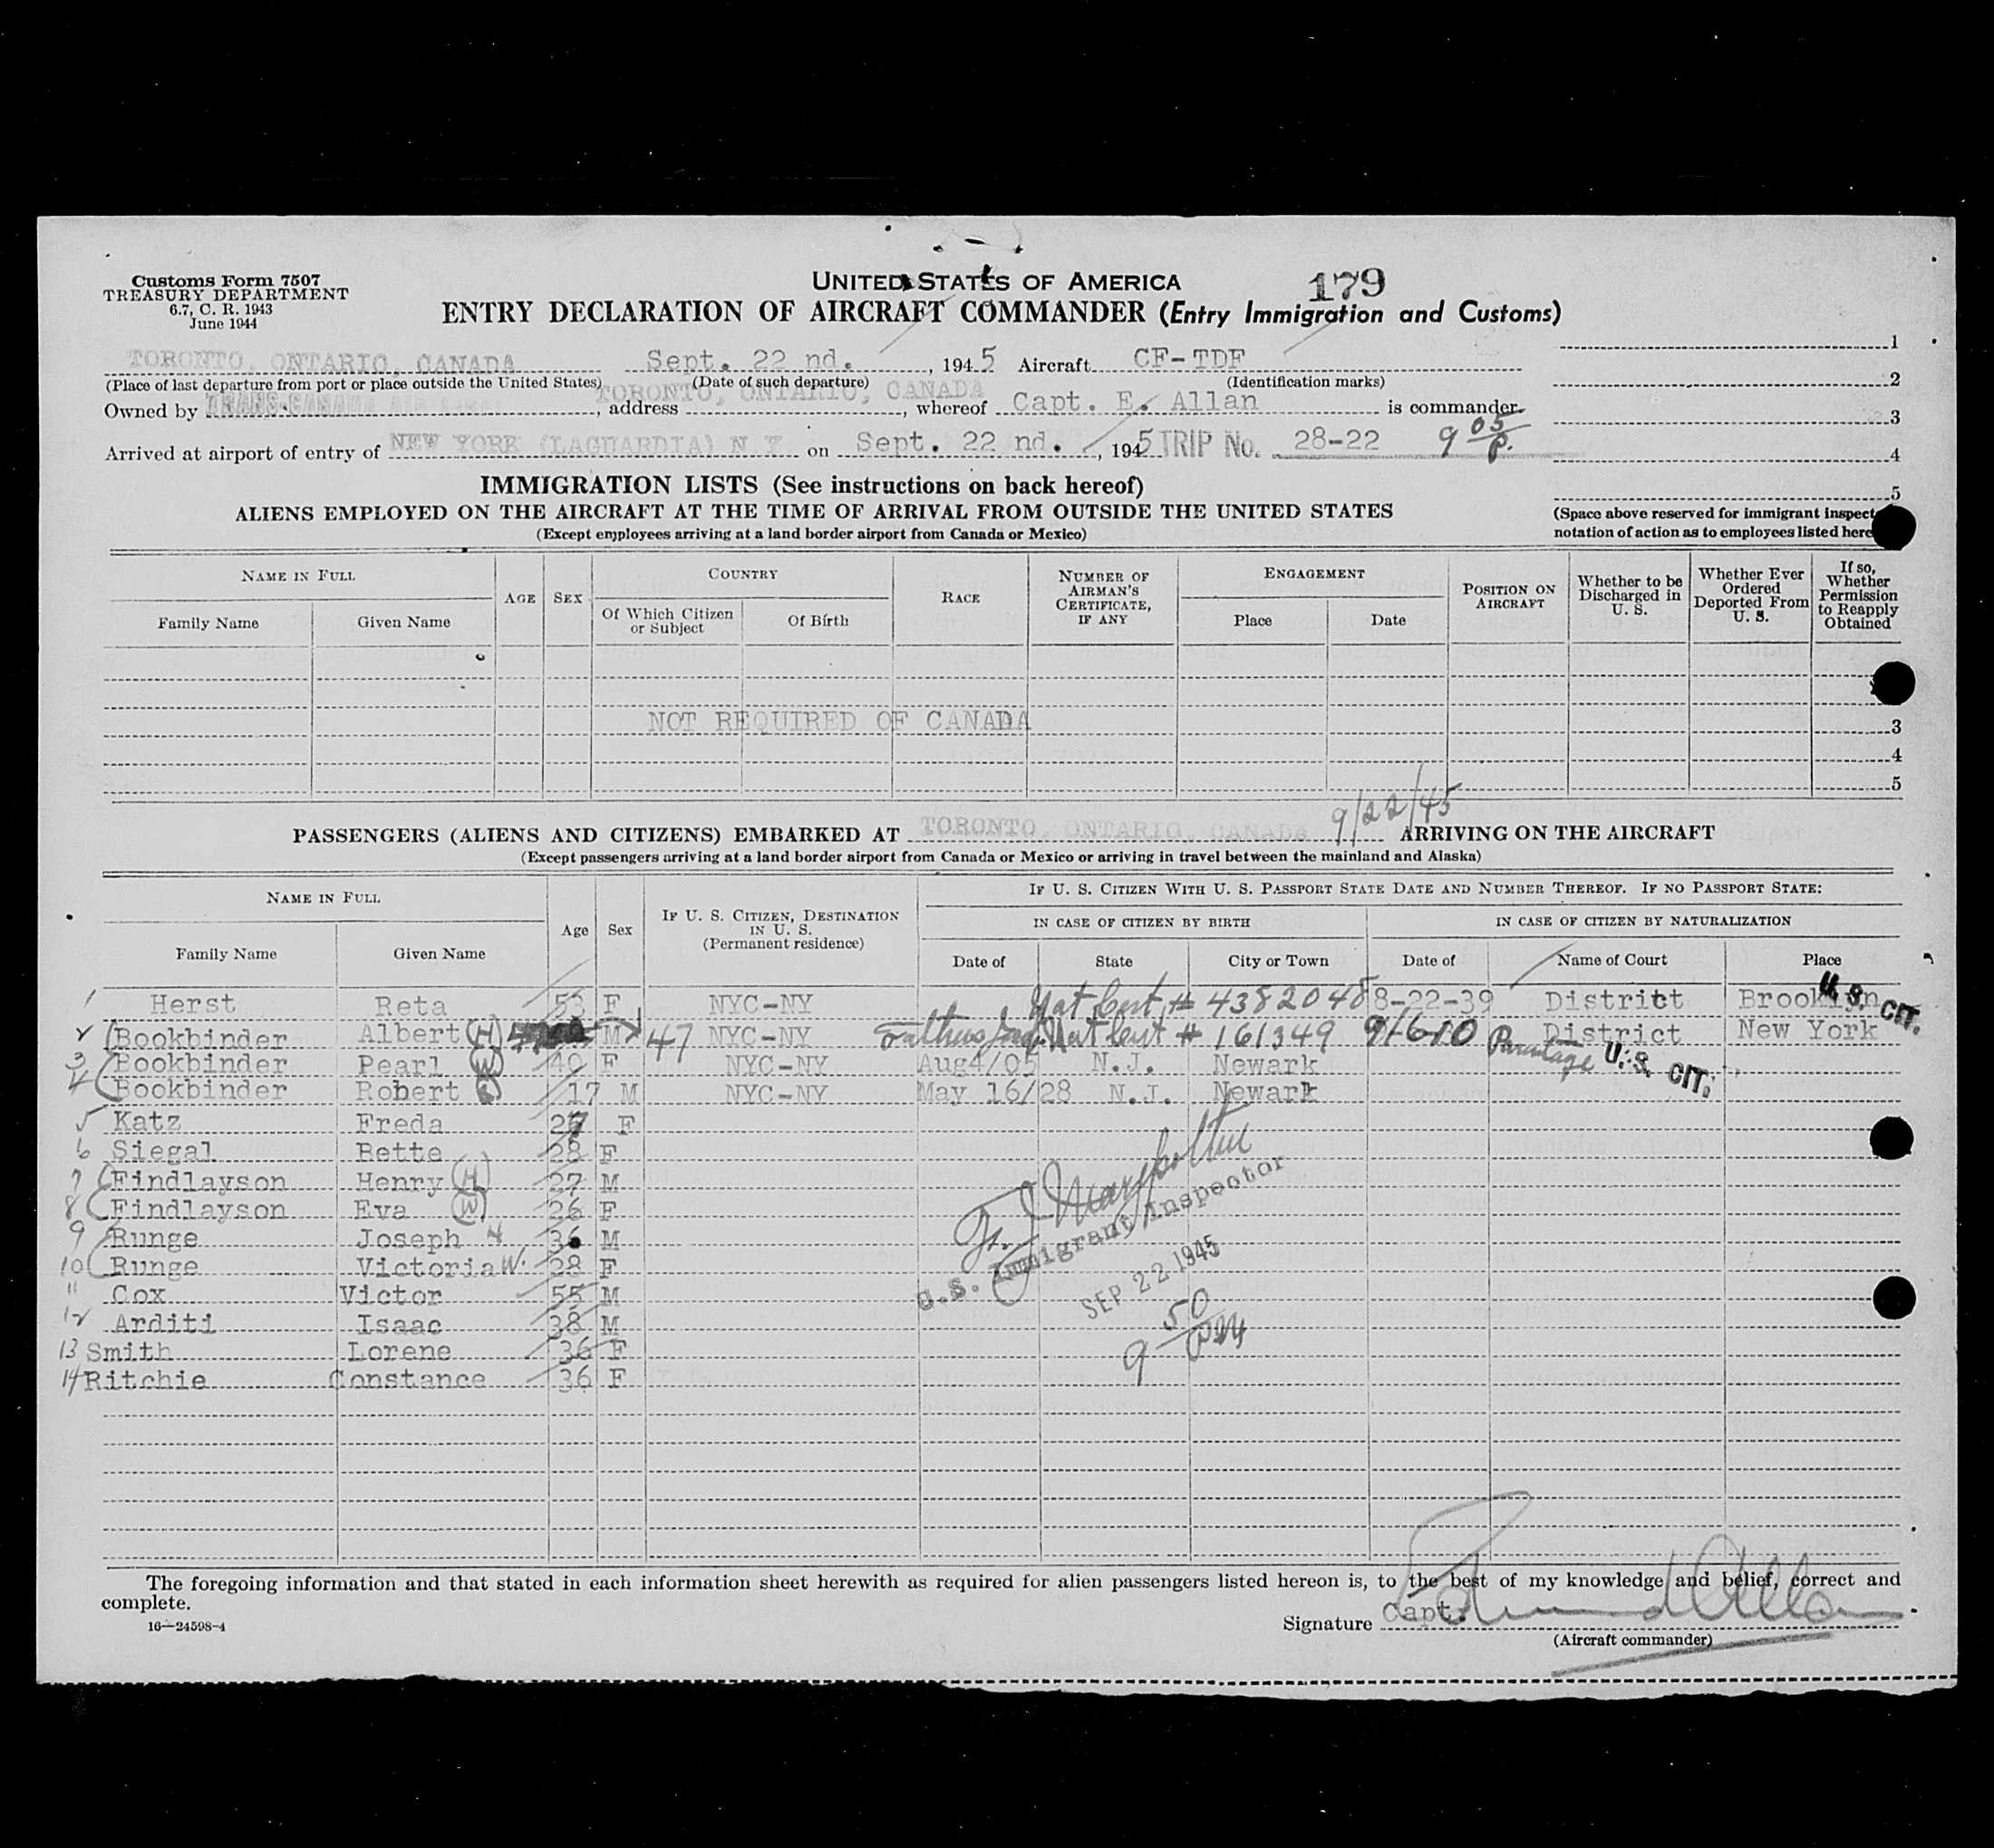 Customs Form 7507
TREASURY DEPARTMENT
6.7, C. R. 1943
June 1944
UNITED STATES OF AMERICA
179
ENTRY DECLARATION OF AIRCRAFT COMMANDER (Entry Immigration and Customs)
TORONTO, ONTARIO, CANADA Sept. 22 nd. , 1945 Aircraft CF-TDF 1
(Place of last departure from port or place outside the United States) (Date of such departure) (Identification marks) 2
Owned by TRANS-CANADA AIR , address TORONTO, ONTARIO, CANADA , whereof Capt. E. Allan is commander. 3
Arrived at airport of entry of NEW YORK (LAGUARDIA) N Y on Sept. 22 nd. , 1945 TRIP No. 28-22 9 05 P. 4
IMMIGRATION LISTS (See instructions on back hereof) 5
ALIENS EMPLOYED ON THE AIRCRAFT AT THE TIME OF ARRIVAL FROM OUTSIDE THE UNITED STATES
(Except employees arriving at a land border airport from Canada or Mexico)
(Space above reserved for immigrant inspect
notation of action as to employees listed here
NAME IN FULL
Family Name Given Name
AGE SEX
COUNTRY
Of Which Citizen or Subject Of Birth
RACE
NUMBER OF AIRMAN'S CERTIFICATE, IF ANY
ENGAGEMENT
Place Date
POSITION ON AIRCRAFT
Whether to be Discharged in U. S.
Whether Ever Ordered Deported From U. S.
If so, Whether Permission to Reapply Obtained
NOT REQUIRED OF CANADA
3
4
5
PASSENGERS (ALIENS AND CITIZENS) EMBARKED AT TORONTO, ONTARIO, CANADA 9/22/45 ARRIVING ON THE AIRCRAFT
(Except passengers arriving at a land border airport from Canada or Mexico or arriving in travel between the mainland and Alaska)
NAME IN FULL
Family Name Given Name
Age Sex
IF U. S. CITIZEN, DESTINATION IN U. S. (Permanent residence)
IF U. S. CITIZEN WITH U. S. PASSPORT STATE DATE AND NUMBER THEREOF. IF NO PASSPORT STATE:
IN CASE OF CITIZEN BY BIRTH IN CASE OF CITIZEN BY NATURALIZATION
Date of State City or Town Date of Name of Court Place
1 Herst Reta 53 F NYC-NY Nat Cert # 4382048 8-22-39 District Brooklyn U. S. CIT.
2 Bookbinder Albert (H) M 47 NYC-NY Nat Cert # 161349 9/6/10 Parentage District New York
3 Bookbinder Pearl (W) 40 F NYC-NY Aug4/05 N.J. Newark U. S. CIT.
4 Bookbinder Robert (S) 17 M NYC-NY May 16/28 N.J. Newark
5 Katz Freda 27 F
6 Siegal Bette 28 F
7 Findlayson Henry (H) 27 M
8 Findlayson Eva (W) 26 F
9 Runge Joseph H M
10 Runge Victoria W. 28 F
11 Cox Victor 55 M
12 Arditi Isaac 38 M
13 Smith Lorene 36 F
14 Ritchie Constance 36 F
U.S. Immigrant Inspector
SEP 22 1945
9 50 PM
The foregoing information and that stated in each information sheet herewith as required for alien passengers listed hereon is, to the best of my knowledge and belief, correct and
complete.
16—24598-4
Signature Capt. Edmund Allan
(Aircraft commander)